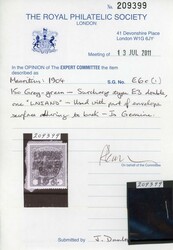 No. 209399
THE ROYAL PHILATELIC SOCIETY
LONDON
41 Devonshire Place
London W1G 6JY
Meeting of 13 JUL 2011
In the OPINION of The EXPERT COMMITTEE the item
described as
Mauritius: 1904 S.G. No. E6c (-)
15c Grey-green - Surcharge type E3 double,
one "LNIANS" - Used with part of envelope
surface adhering to back - Is Genuine.
209399
209399
Submitted by J.